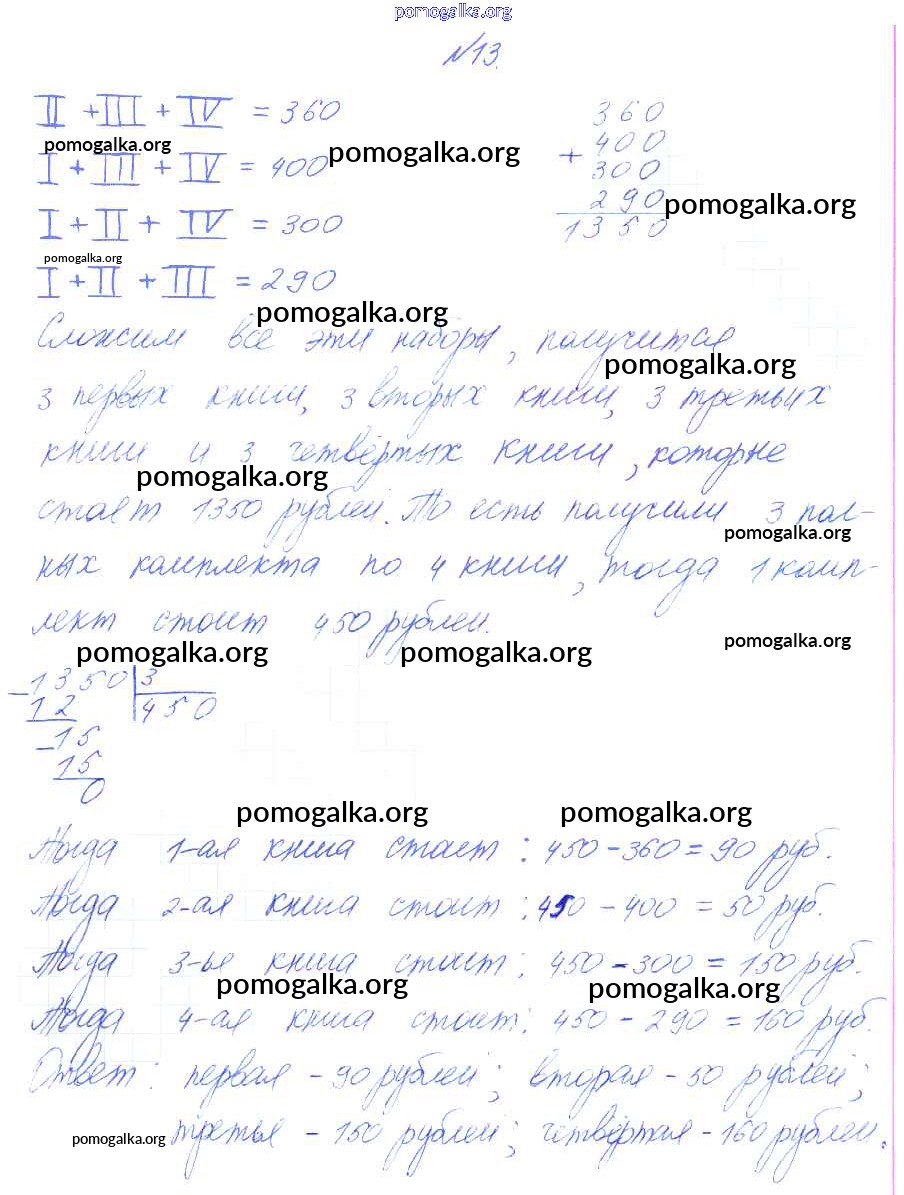 pomogalka.org
№13.
II + III + IV = 360
pomogalka.org
I + III + IV = 400
pomogalka.org
I + II + IV = 300
pomogalka.org
I + II + III = 290
360
+ 400
300
290
pomogalka.org
1350
pomogalka.org
Сложим все эти наборы, получится
pomogalka.org
3 первых книги, 3 вторых книги, 3 третьих
книги и 3 четвёртых книги, которые
pomogalka.org
стоят 1350 рублей. То есть получили 3 пол-
pomogalka.org
ных комплекта по 4 книги, тогда 1 комп-
лект стоит 450 рублей.
pomogalka.org pomogalka.org pomogalka.org
-1350 3
12 450
-15
15
0
pomogalka.org pomogalka.org
Тогда 1-ая книга стоит: 450 - 360 = 90 руб.
Тогда 2-ая книга стоит: 450 - 400 = 50 руб.
Тогда 3-ья книга стоит: 450 - 300 = 150 руб.
pomogalka.org pomogalka.org
Тогда 4-ая книга стоит: 450 - 290 = 160 руб.
Ответ: первая - 90 рублей; вторая - 50 рублей;
pomogalka.org третья - 150 рублей; четвёртая - 160 рублей.